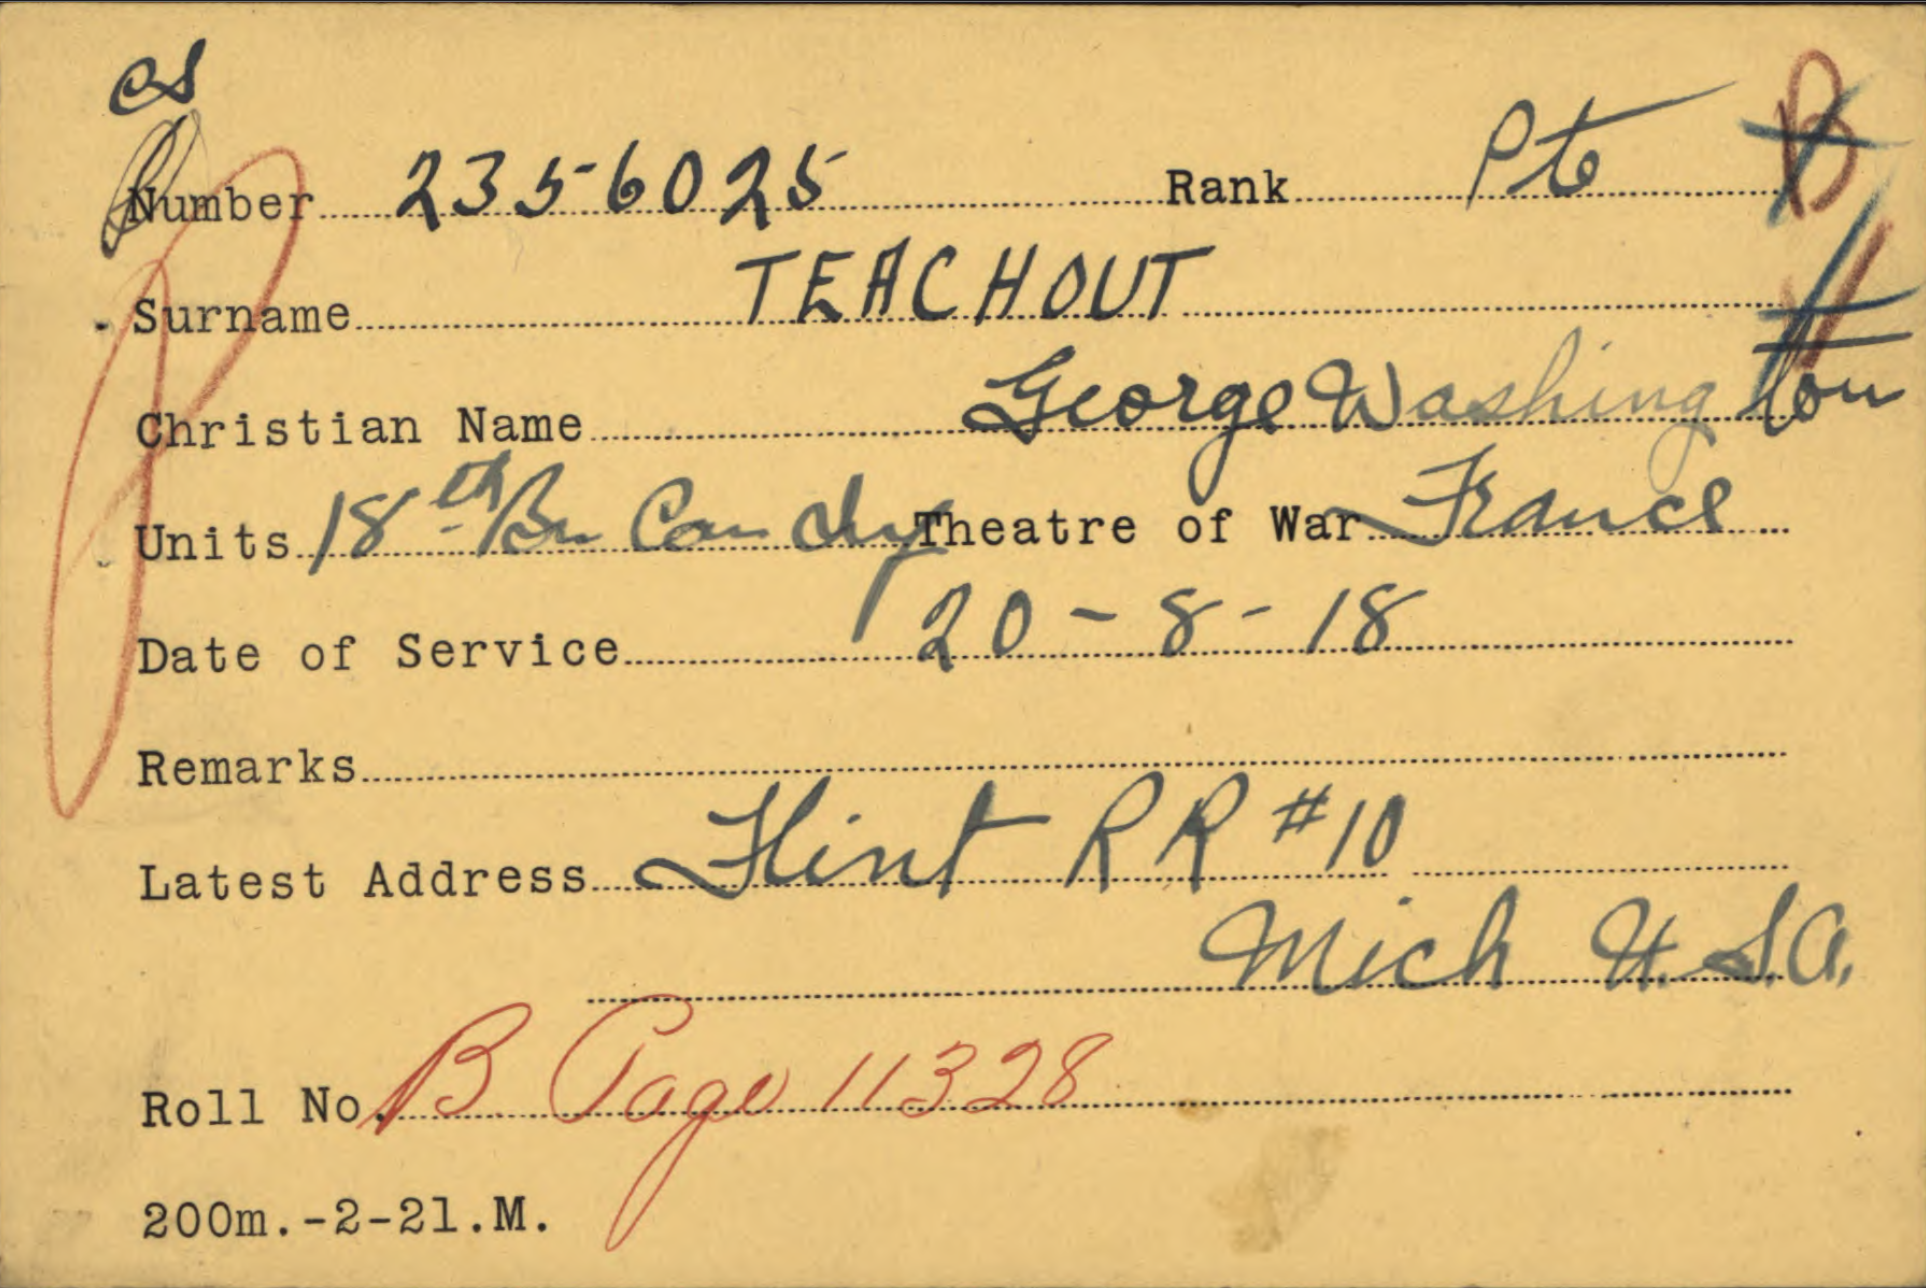 cs
Number 2356025 Rank Pte
Surname TEACHOUT
Christian Name George Washington
Units 18th Bn Can Inf Theatre of War France
Date of Service 20-8-18
Remarks
Latest Address Flint RR #10
Mich U.S.A.
Roll No. B Page 11328
200m.-2-21.M.